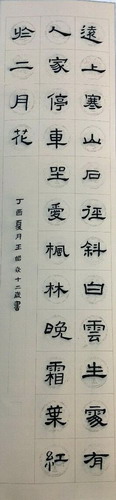 遠上寒山石徑斜白雲生處有
人家停車坐愛楓林晚霜葉紅
於二月花
丁酉夏月王如众十二歲書